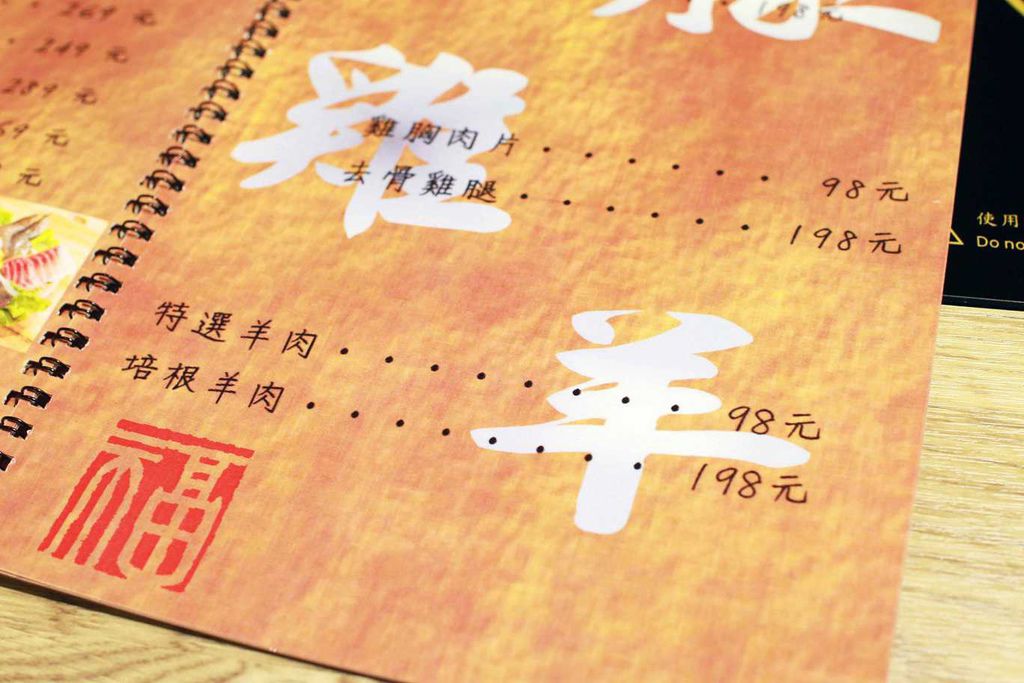 269 元
249 元
289 元
69 元
元
198 元
雞
雞胸肉片 98元
去骨雞腿 198元
羊
特選羊肉 98元
培根羊肉 198元
福
使用
Do no